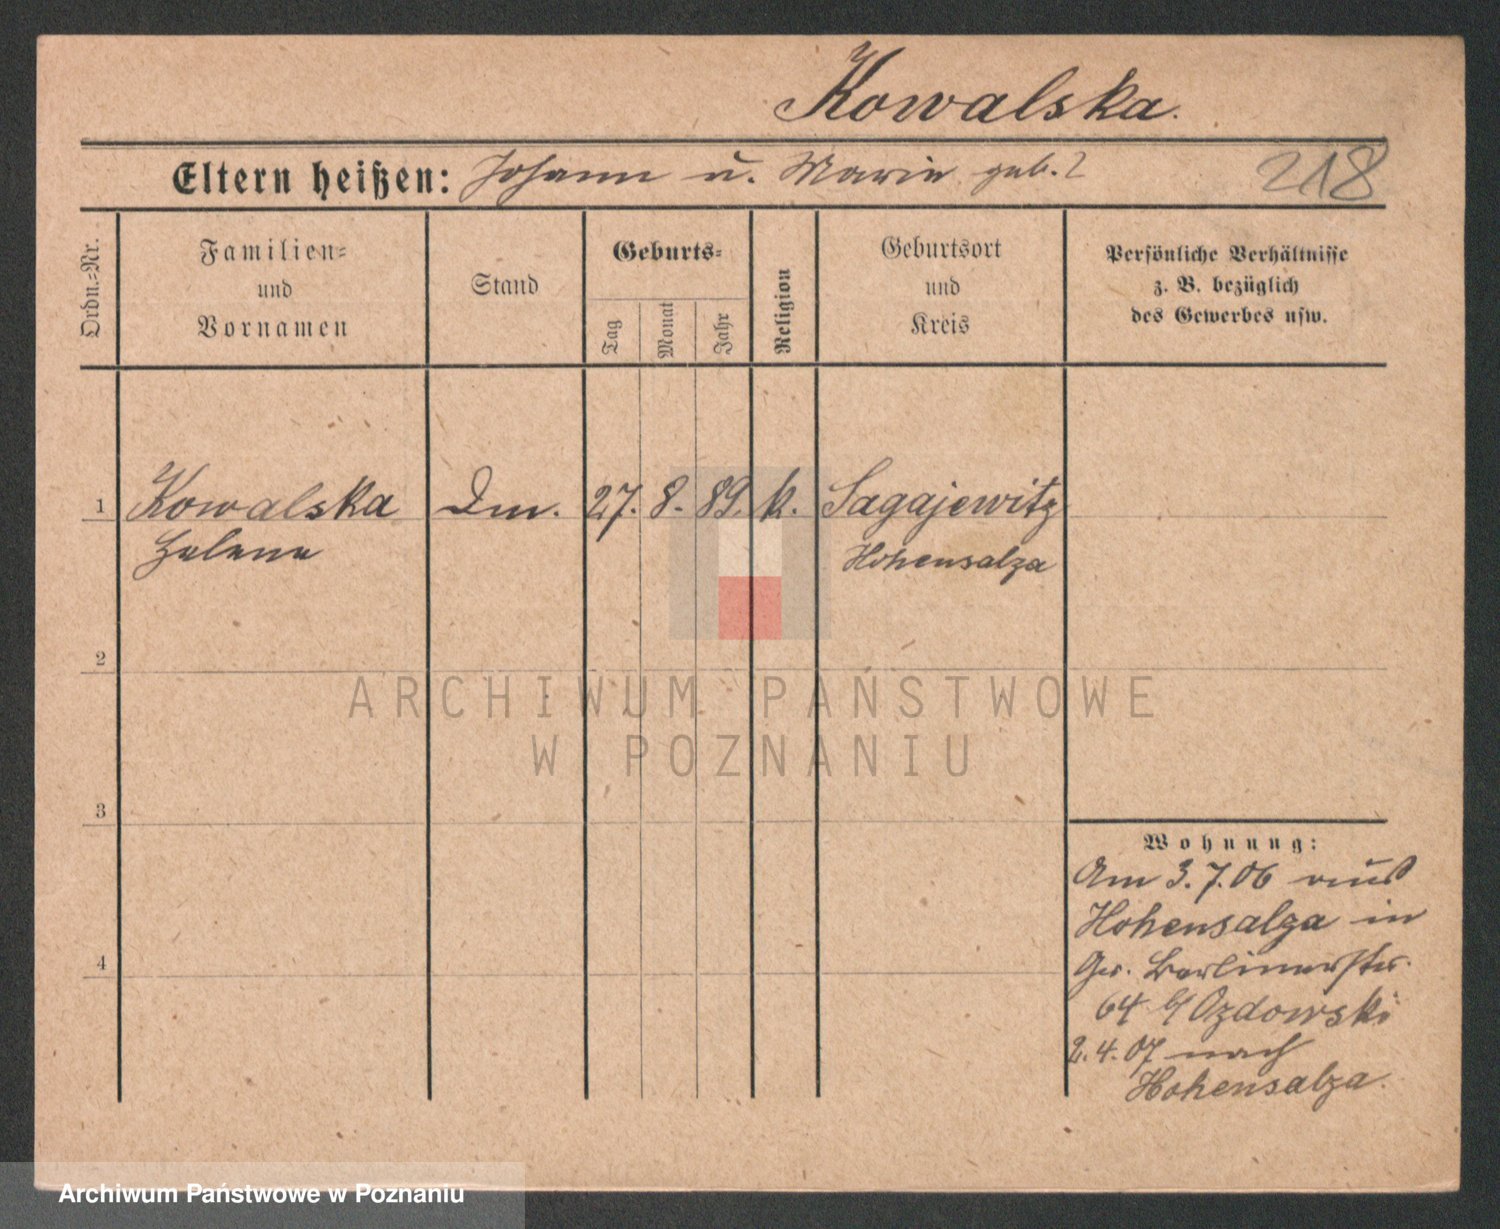 Kowalska.
Eltern heißen: Johann u. Marie geb. ?
218
Ordn.=Nr.
Familien=
und
Vornamen
Stand
Geburts=
Tag
Monat
Jahr
Religion
Geburtsort
und
Kreis
Persönliche Verhältnisse
z. B. bezüglich
des Gewerbes usw.
1 Kowalska Dm. 27. 8. 89. k. Sagajewitz
Helene Hohensalza
2
ARCHIWUM PAŃSTWOWE
W POZNANIU
3
Wohnung:
Am 3.7.06 aus
Hohensalza in
Berlinerstr.
4
64 b/ Ozdowski
2.4.07 nach
Hohensalza.
Archiwum Państwowe w Poznaniu